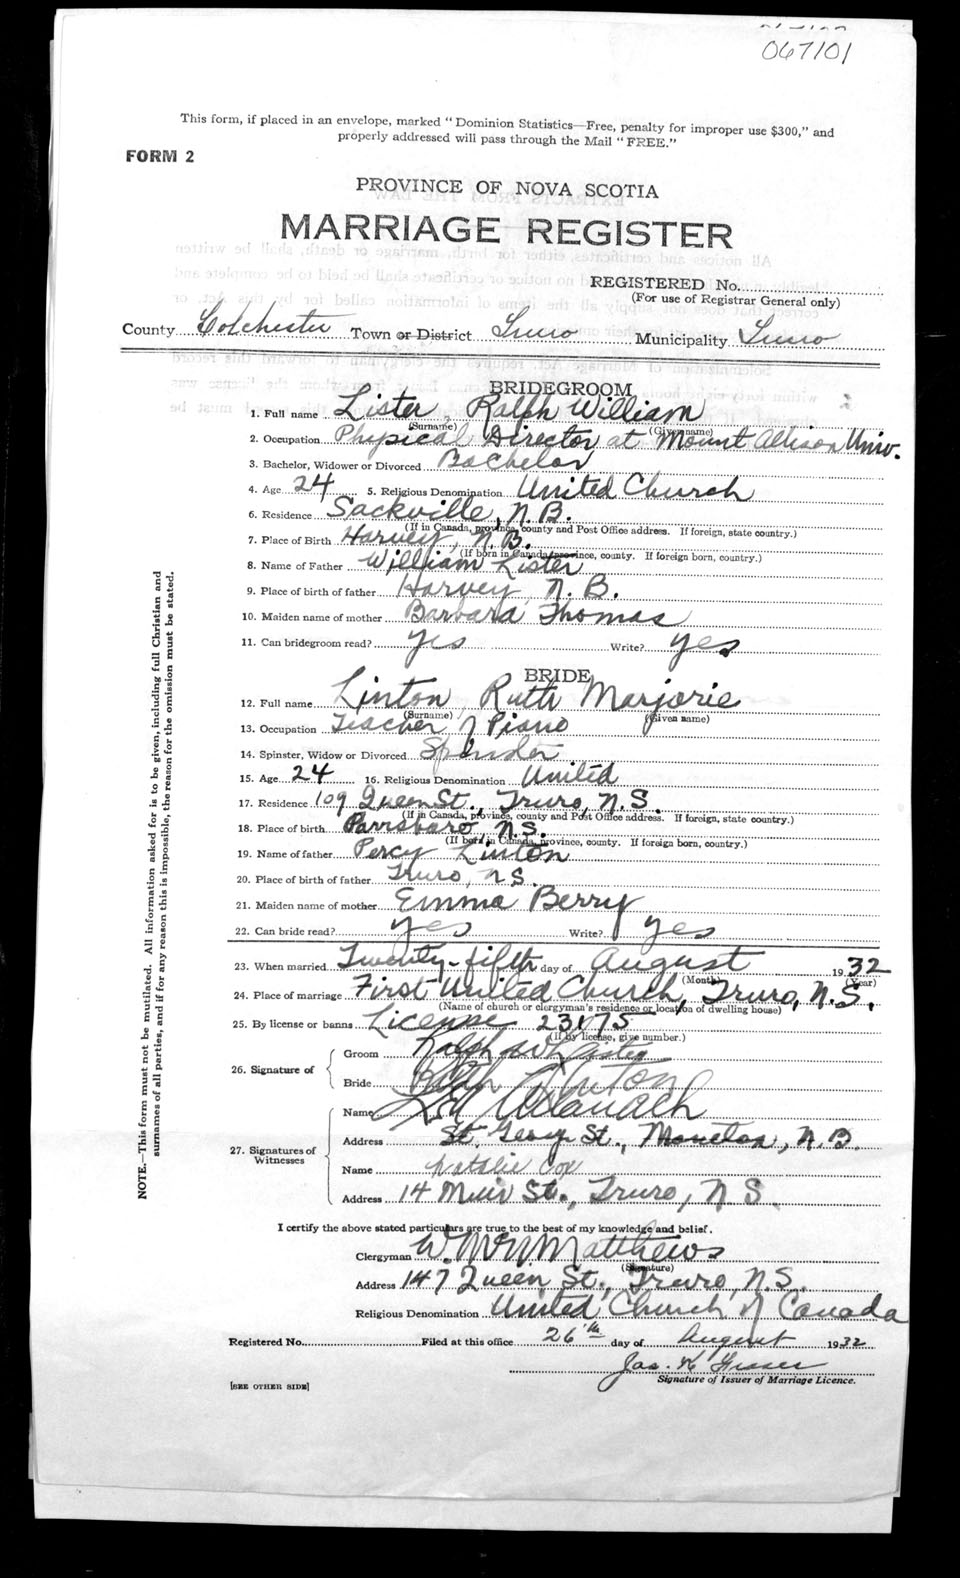 067101
This form, if placed in an envelope, marked "Dominion Statistics—Free, penalty for improper use $300," and
properly addressed will pass through the Mail "FREE."
FORM 2
PROVINCE OF NOVA SCOTIA
MARRIAGE REGISTER
REGISTERED No.
(For use of Registrar General only)
County Colchester Town or District Truro Municipality Truro
BRIDEGROOM
1. Full name Lister, Ralph William
(Surname) (Given name)
2. Occupation Physical Director at Mount Allison Univ.
3. Bachelor, Widower or Divorced Bachelor
4. Age 24 5. Religious Denomination United Church
6. Residence Sackville, N.B.
(If in Canada, province, county and Post Office address. If foreign, state country.)
7. Place of Birth Harvey, N.B.
(If born in Canada, province, county. If foreign born, country.)
8. Name of Father William Lister
9. Place of birth of father Harvey, N.B.
10. Maiden name of mother Barbara Thomas
11. Can bridegroom read? yes Write? yes
BRIDE
12. Full name Linton, Ruth Marjorie
(Surname) (Given name)
13. Occupation Teacher of Piano
14. Spinster, Widow or Divorced Spinster
15. Age 24 16. Religious Denomination United
17. Residence 109 Queen St., Truro, N.S.
(If in Canada, province, county and Post Office address. If foreign, state country.)
18. Place of birth Parrsboro, N.S.
(If born in Canada, province, county. If foreign born, country.)
19. Name of father Percy Linton
20. Place of birth of father Truro, N.S.
21. Maiden name of mother Emma Berry
22. Can bride read? yes Write? yes
23. When married Twenty-fifth day of August 1932
(Month) (Year)
24. Place of marriage First United Church, Truro, N.S.
(Name of church or clergyman's residence or location of dwelling house)
25. By license or banns License 23175
(If by license, give number.)
26. Signature of
Groom Ralph W Lister
Bride Ruth Linton
27. Signatures of Witnesses
Name
Address St. George St., Moncton, N.B.
Name Natalie Cox
Address 14 Muir St., Truro, N.S.
I certify the above stated particulars are true to the best of my knowledge and belief.
Clergyman Matthews
(Signature)
Address 147 Queen St., Truro, N.S.
Religious Denomination United Church of Canada
Registered No. Filed at this office 26th day of August 1932
Jas. K
Signature of Issuer of Marriage Licence.
[SEE OTHER SIDE]
NOTE.—This form must not be mutilated. All information asked for is to be given, including full Christian and
surnames of all parties, and if for any reason this is impossible, the reason for the omission must be stated.